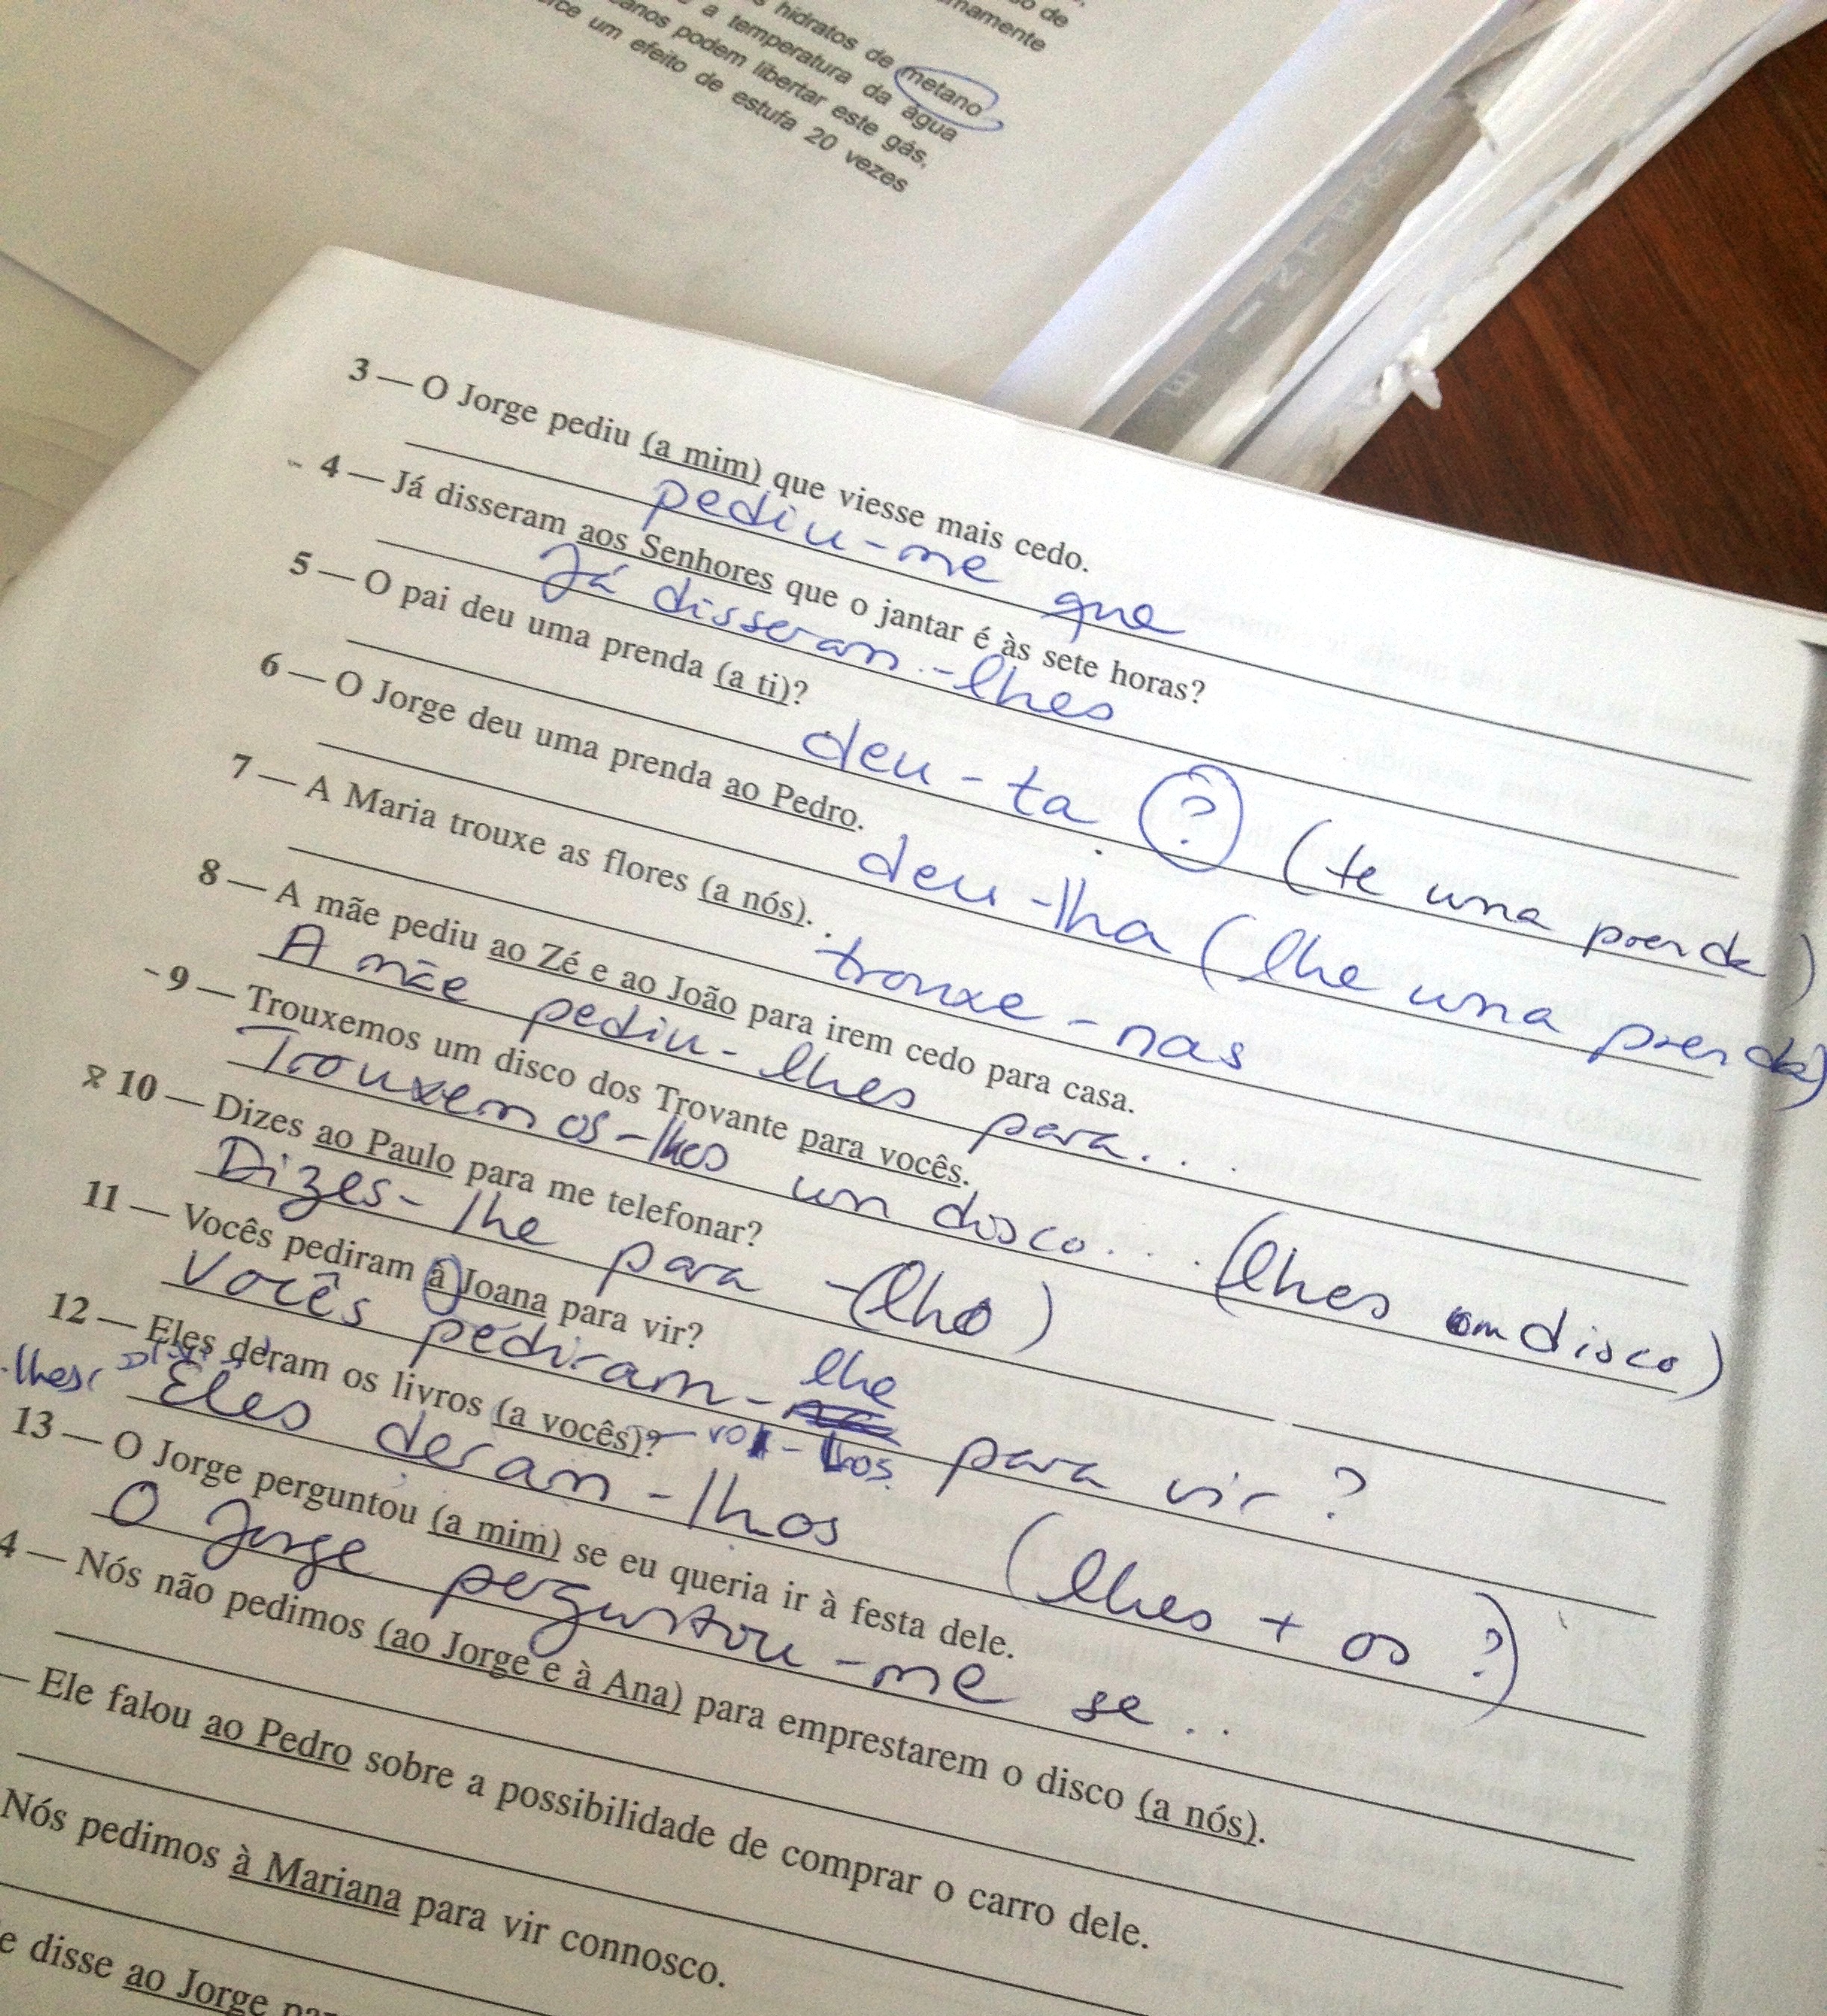 so de
mamente
s hidratos de metano
a temperatura da água
anos podem libertar este gás,
rce um efeito de estufa 20 vezes
3 — O Jorge pediu (a mim) que viesse mais cedo.
pediu-me que
4 — Já disseram aos Senhores que o jantar é às sete horas?
Já disseram-lhes
5 — O pai deu uma prenda (a ti)?
deu-ta ? (te uma prenda)
6 — O Jorge deu uma prenda ao Pedro.
deu-lha (lhe uma prenda)
7 — A Maria trouxe as flores (a nós).
trouxe-nas
8 — A mãe pediu ao Zé e ao João para irem cedo para casa.
A mãe pediu-lhes para...
9 — Trouxemos um disco dos Trovante para vocês.
Trouxemos-lhes um disco.... (lhes um disco)
10 — Dizes ao Paulo para me telefonar?
Dizes-lhe para -(lho)
11 — Vocês pediram à Joana para vir?
Vocês pediram-lhe para vir?
12 — Eles deram os livros (a vocês)?
Eles deram-lhos (lhes + os ?)
13 — O Jorge perguntou (a mim) se eu queria ir à festa dele.
O Jorge perguntou-me se..
4 — Nós não pedimos (ao Jorge e à Ana) para emprestarem o disco (a nós).
— Ele falou ao Pedro sobre a possibilidade de comprar o carro dele.
Nós pedimos à Mariana para vir connosco.
e disse ao Jorge pa